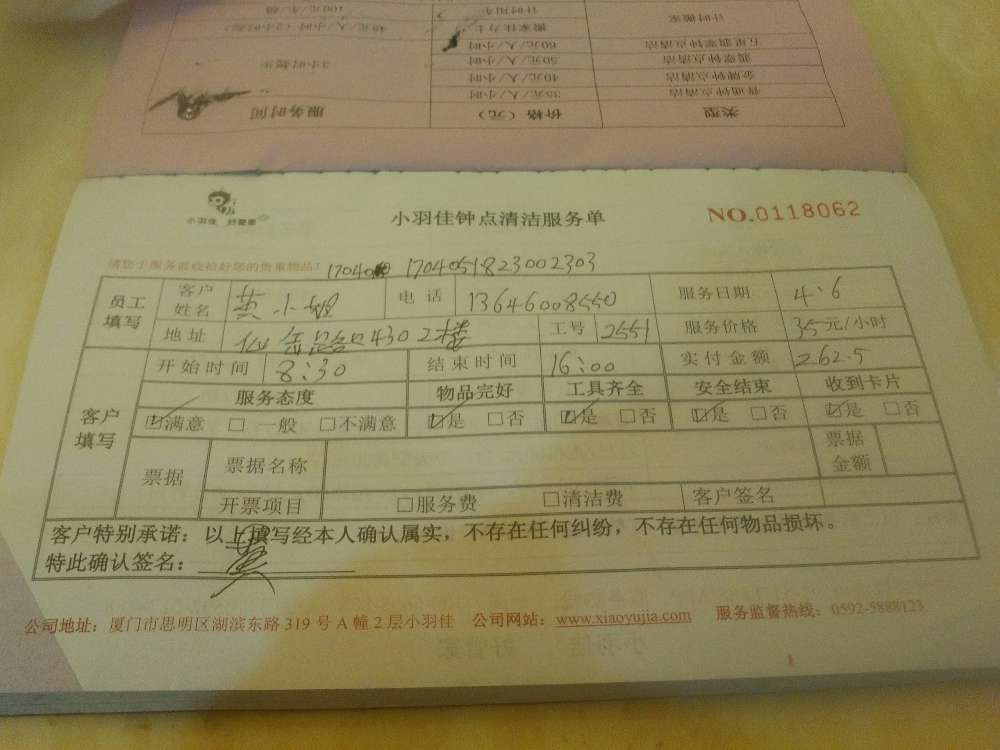 类型 价格（元） 服务时间
普通钟点清洁 35元/人/小时
金牌钟点清洁 40元/人/小时 3小时起步
翡翠钟点清洁 50元/人/小时
五星翡翠钟点清洁 60元/人/小时
计时搬家 搬家大力士 40元/人/小时（2小时起）
计时用车 100元/车/趟
小羽佳 好管家
小羽佳钟点清洁服务单 NO.0118062
请您于服务前收拾好您的贵重物品！ 1704051823002303
员工填写 客户姓名 黄小姐 电话 13646008550 服务日期 4.6
地址 4302楼 工号 2551 服务价格 35元/小时
客户填写 开始时间 8:30 结束时间 16:00 实付金额 262.5
服务态度 物品完好 工具齐全 安全结束 收到卡片
☑满意 □一般 □不满意 ☑是 □否 ☑是 □否 ☑是 □否 ☑是 □否
票据 票据名称 票据金额
开票项目 □服务费 □清洁费 客户签名
客户特别承诺：以上填写经本人确认属实，不存在任何纠纷，不存在任何物品损坏。
特此确认签名： 黄
公司地址：厦门市思明区湖滨东路319号A幢2层小羽佳 公司网站：www.xiaoyujia.com 服务监督热线：0592-5888123